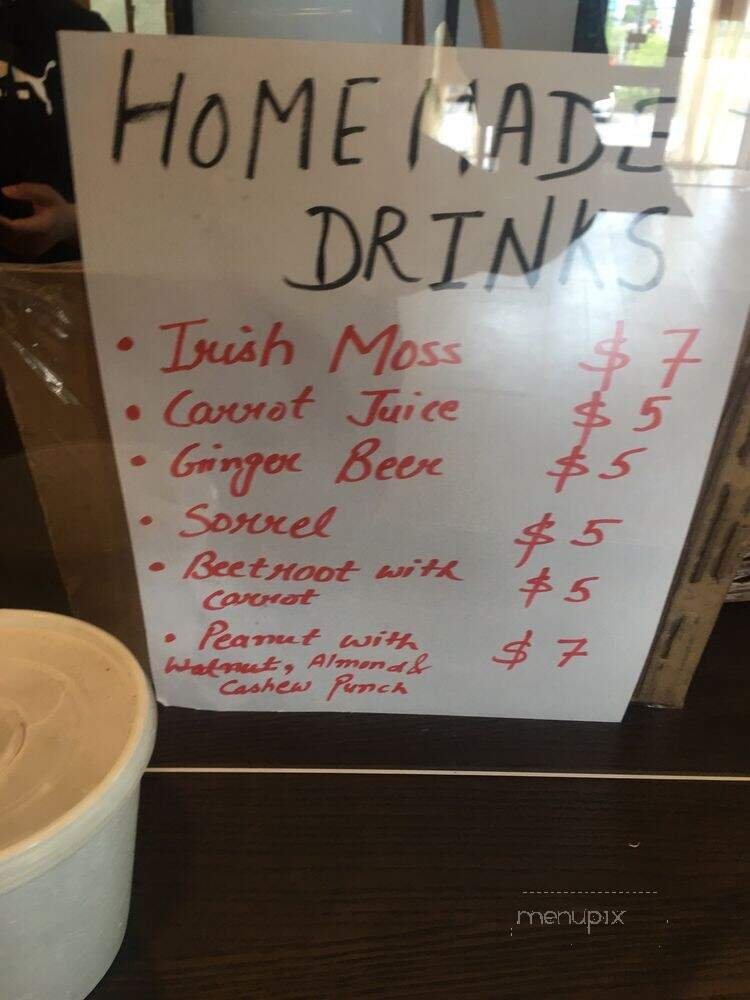 HOMEMADE
DRINKS
• Irish Moss $ 7
• Carrot Juice $ 5
• Ginger Beer $ 5
• Sorrel $ 5
• Beetroot with $ 5
carrot
• Peanut with $ 7
Walnut, Almond &
Cashew Punch
menupix